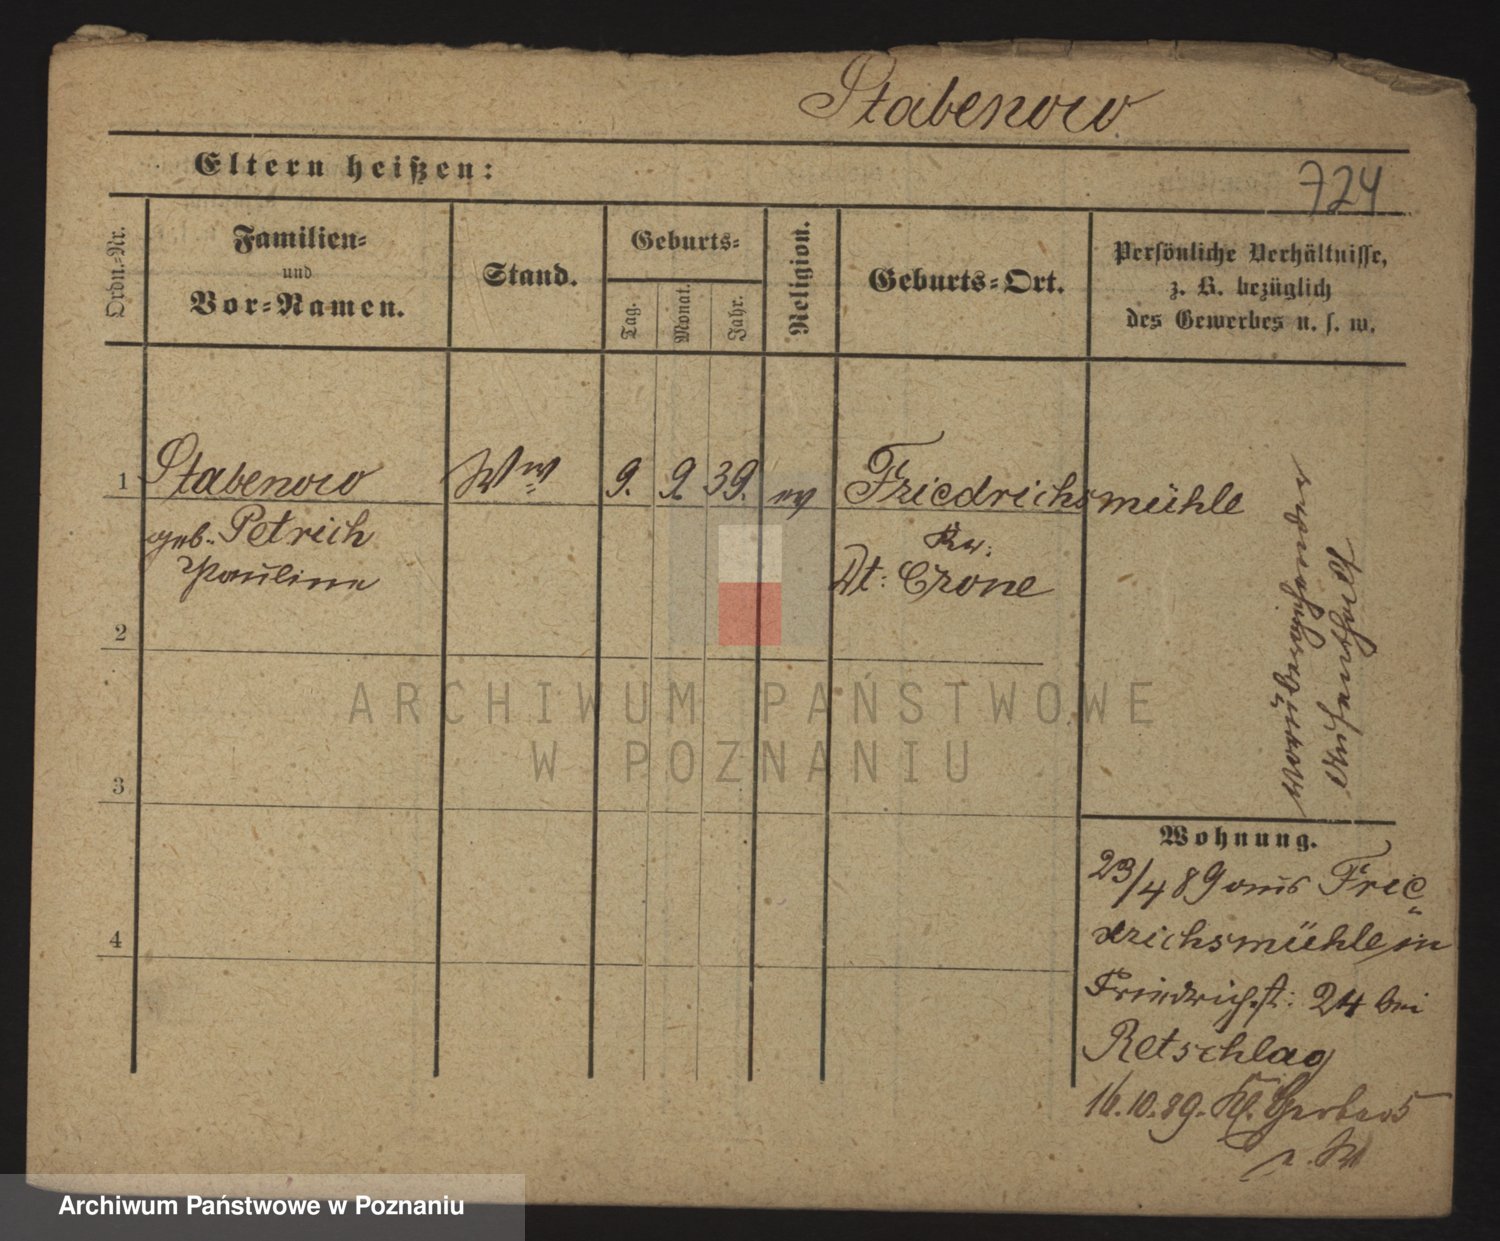 Stabenow
Eltern heißen:
724
Ordn.-Nr.
Familien-
und
Vor-Namen.
Stand.
Geburts-
Tag.
Monat.
Jahr.
Religion.
Geburts-Ort.
Persönliche Verhältnisse,
z. B. bezüglich
des Gewerbes u. s. w.
1 Stabenow Ww 9. 9. 39. ev Friedrichsmühle
geb. Petrich Kr.
Pauline Dt: Crone
vorübergehender
Aufenthalt
2
3
4
ARCHIWUM PAŃSTWOWE
W POZNANIU
Wohnung.
23/4 89 aus Frie
drichsmühle in
Friedrichst: 24 bei
Retschlag
16.10.89. Kl. Gerber 5
Archiwum Państwowe w Poznaniu